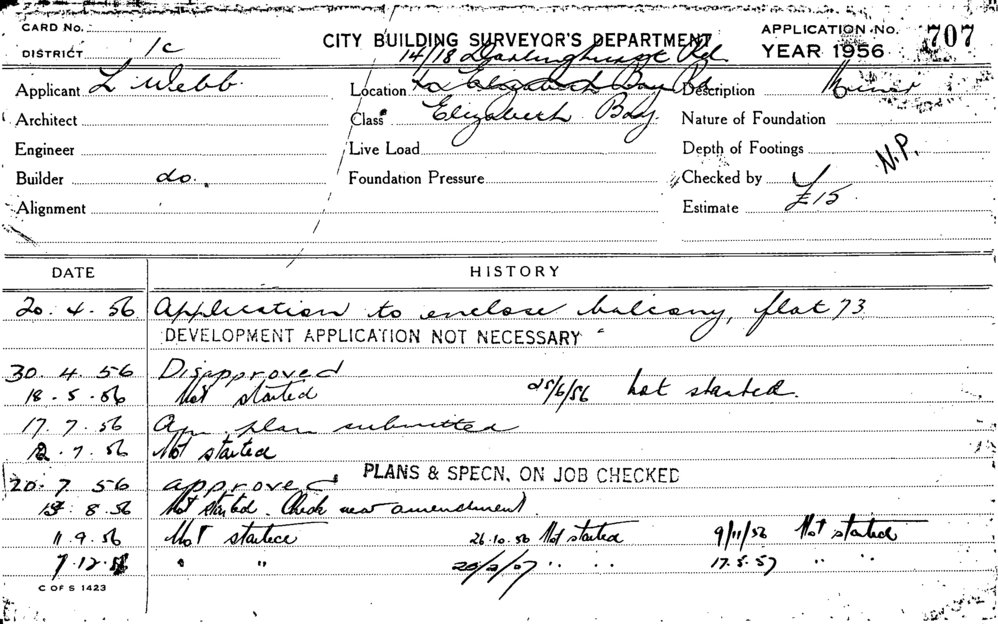 CARD No.
DISTRICT 1c
CITY BUILDING SURVEYOR'S DEPARTMENT
APPLICATION No. 707
YEAR 1956
14/18 Darlinghurst Rd.
Applicant L Webb
Location to Elizabeth Bay Rd
Description Minor
Architect
Class Elizabeth Bay.
Nature of Foundation
Engineer
Live Load
Depth of Footings
N.P.
Builder do.
Foundation Pressure
Checked by
Alignment
Estimate £15
DATE HISTORY
20. 4. 56 Application to enclose balcony, flat 73
DEVELOPMENT APPLICATION NOT NECESSARY
30. 4. 56 Disapproved
18. 5. 56 Not started 25/6/56 Not started.
17. 7. 56 Am. plan submitted
12. 7. 56 Not started
PLANS & SPECN. ON JOB CHECKED
20. 7. 56 approved
8. 56 Not started. Check new amendment.
11. 9. 56 Not started 26.10.56 Not started 9/11/56 Not started
7.12.56 " " " " 17.5.57 " "
C OF S 1423